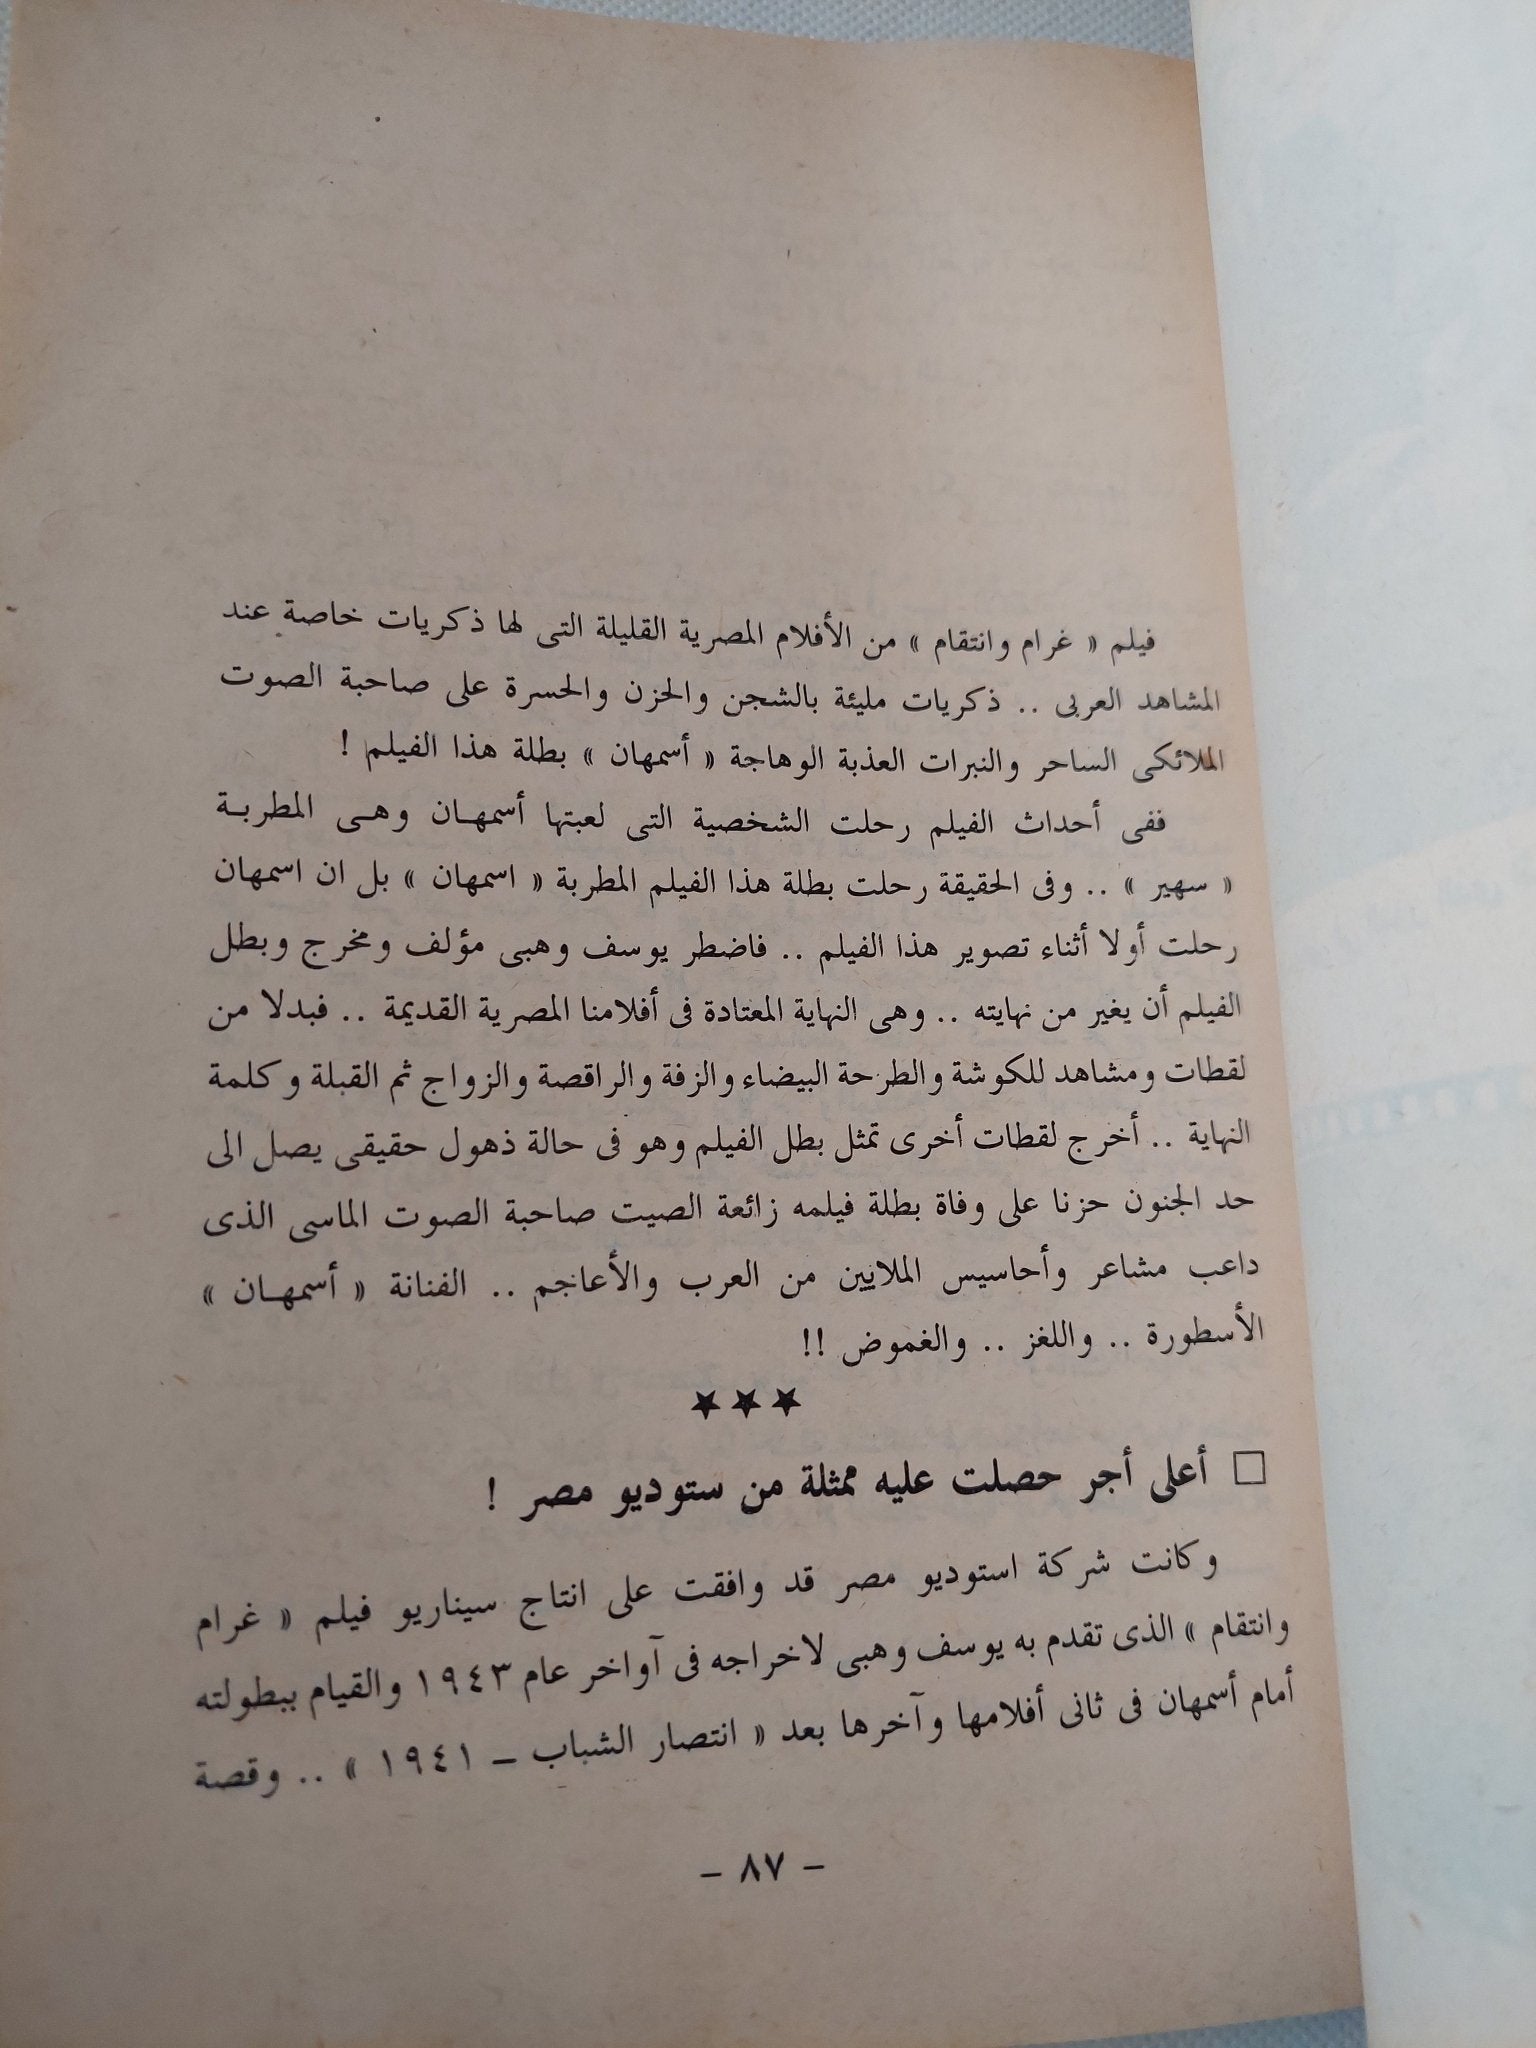 فيلم « غرام وانتقام » من الأفلام المصرية القليلة التى لها ذكريات خاصة عند
المشاهد العربى .. ذكريات مليئة بالشجن والحزن والحسرة على صاحبة الصوت
الملائكى الساحر والنبرات العذبة الوهاجة « أسمهان » بطلة هذا الفيلم !
ففى أحداث الفيلم رحلت الشخصية التى لعبتها أسمهان وهى المطربة
« سهير » .. وفى الحقيقة رحلت بطلة هذا الفيلم المطربة « اسمهان » بل ان اسمهان
رحلت أولا أثناء تصوير هذا الفيلم .. فاضطر يوسف وهبى مؤلف ومخرج وبطل
الفيلم أن يغير من نهايته .. وهى النهاية المعتادة فى أفلامنا المصرية القديمة .. فبدلا من
لقطات ومشاهد للكوشة والطرحة البيضاء والزفة والراقصة والزواج ثم القبلة وكلمة
النهاية .. أخرج لقطات أخرى تمثل بطل الفيلم وهو فى حالة ذهول حقيقى يصل الى
حد الجنون حزنا على وفاة بطلة فيلمه زائعة الصيت صاحبة الصوت الماسى الذى
داعب مشاعر وأحاسيس الملايين من العرب والأعاجم .. الفنانة « أسمهان »
الأسطورة .. واللغز .. والغموض !!
★★★
□ أعلى أجر حصلت عليه ممثلة من ستوديو مصر !
وكانت شركة استوديو مصر قد وافقت على انتاج سيناريو فيلم « غرام
وانتقام » الذى تقدم به يوسف وهبى لاخراجه فى آواخر عام ١٩٤٣ والقيام ببطولته
أمام أسمهان فى ثانى أفلامها وآخرها بعد « انتصار الشباب – ١٩٤١ » .. وقصة
– ٨٧ –